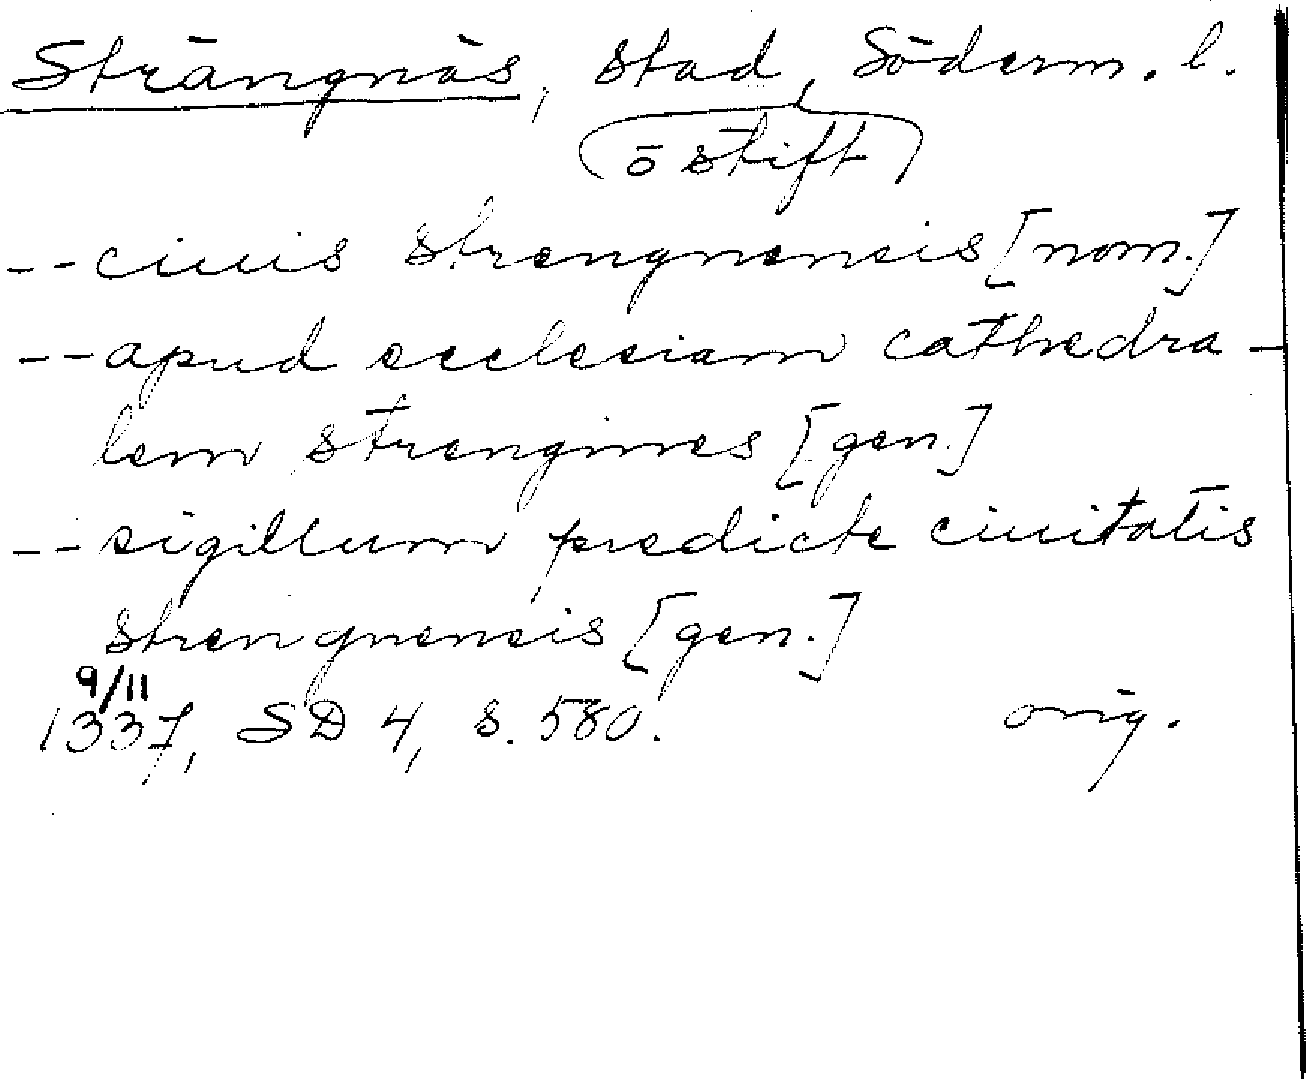 Strängnäs, stad, Söderm. l.
(o stift)
-- ciuis strengnensis [nom.]
-- apud ecclesiam cathedra-
lem strengines [gen.]
-- sigillum predicte ciuitatis
strengnensis [gen.]
9/11
1337, SD 4, s. 580. orig.